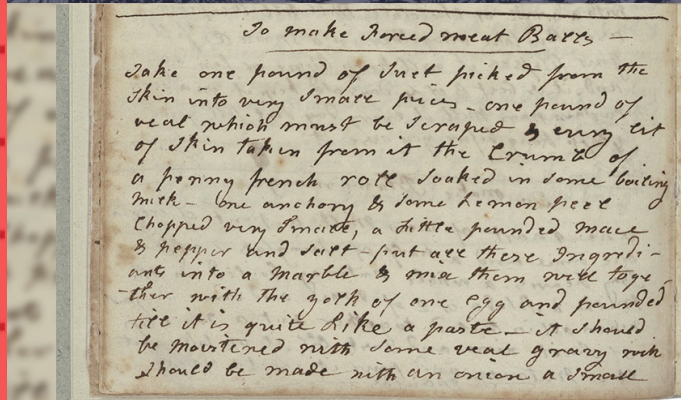 To make Forced meat Balls —
Take one pound of Suet picked from the
Skin into very Small pices – one pound of
veal which must be Scraped & every bit
of Skin taken from it the Crumb of
a penny french roll Soaked in some boiling
milk – one anchovy & some Lemon peel
Chopped very Small, a little pounded mace
& pepper and Salt – put all these Ingredi-
ants into a Marble & mix them well toge
-ther with the yolk of one Egg and pounded
till it is quite Like a paste – it Should
be moistened with Some veal gravy wich
Should be made with an onion a Small